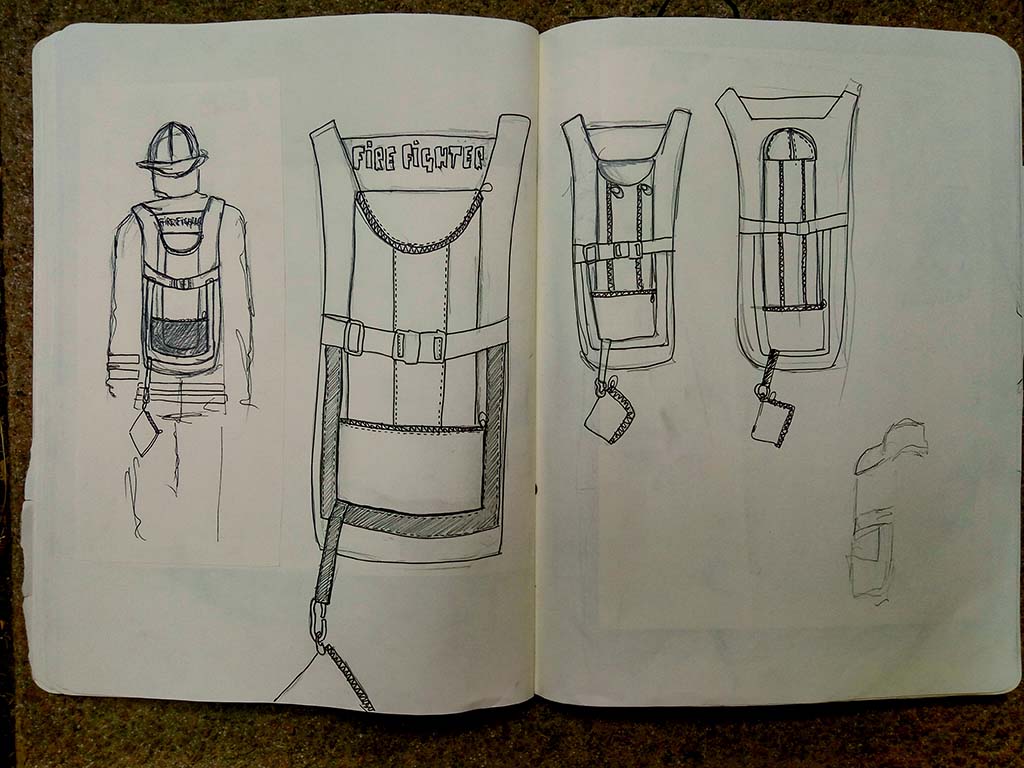 FIREFIGHTER
FIRE FIGHTER